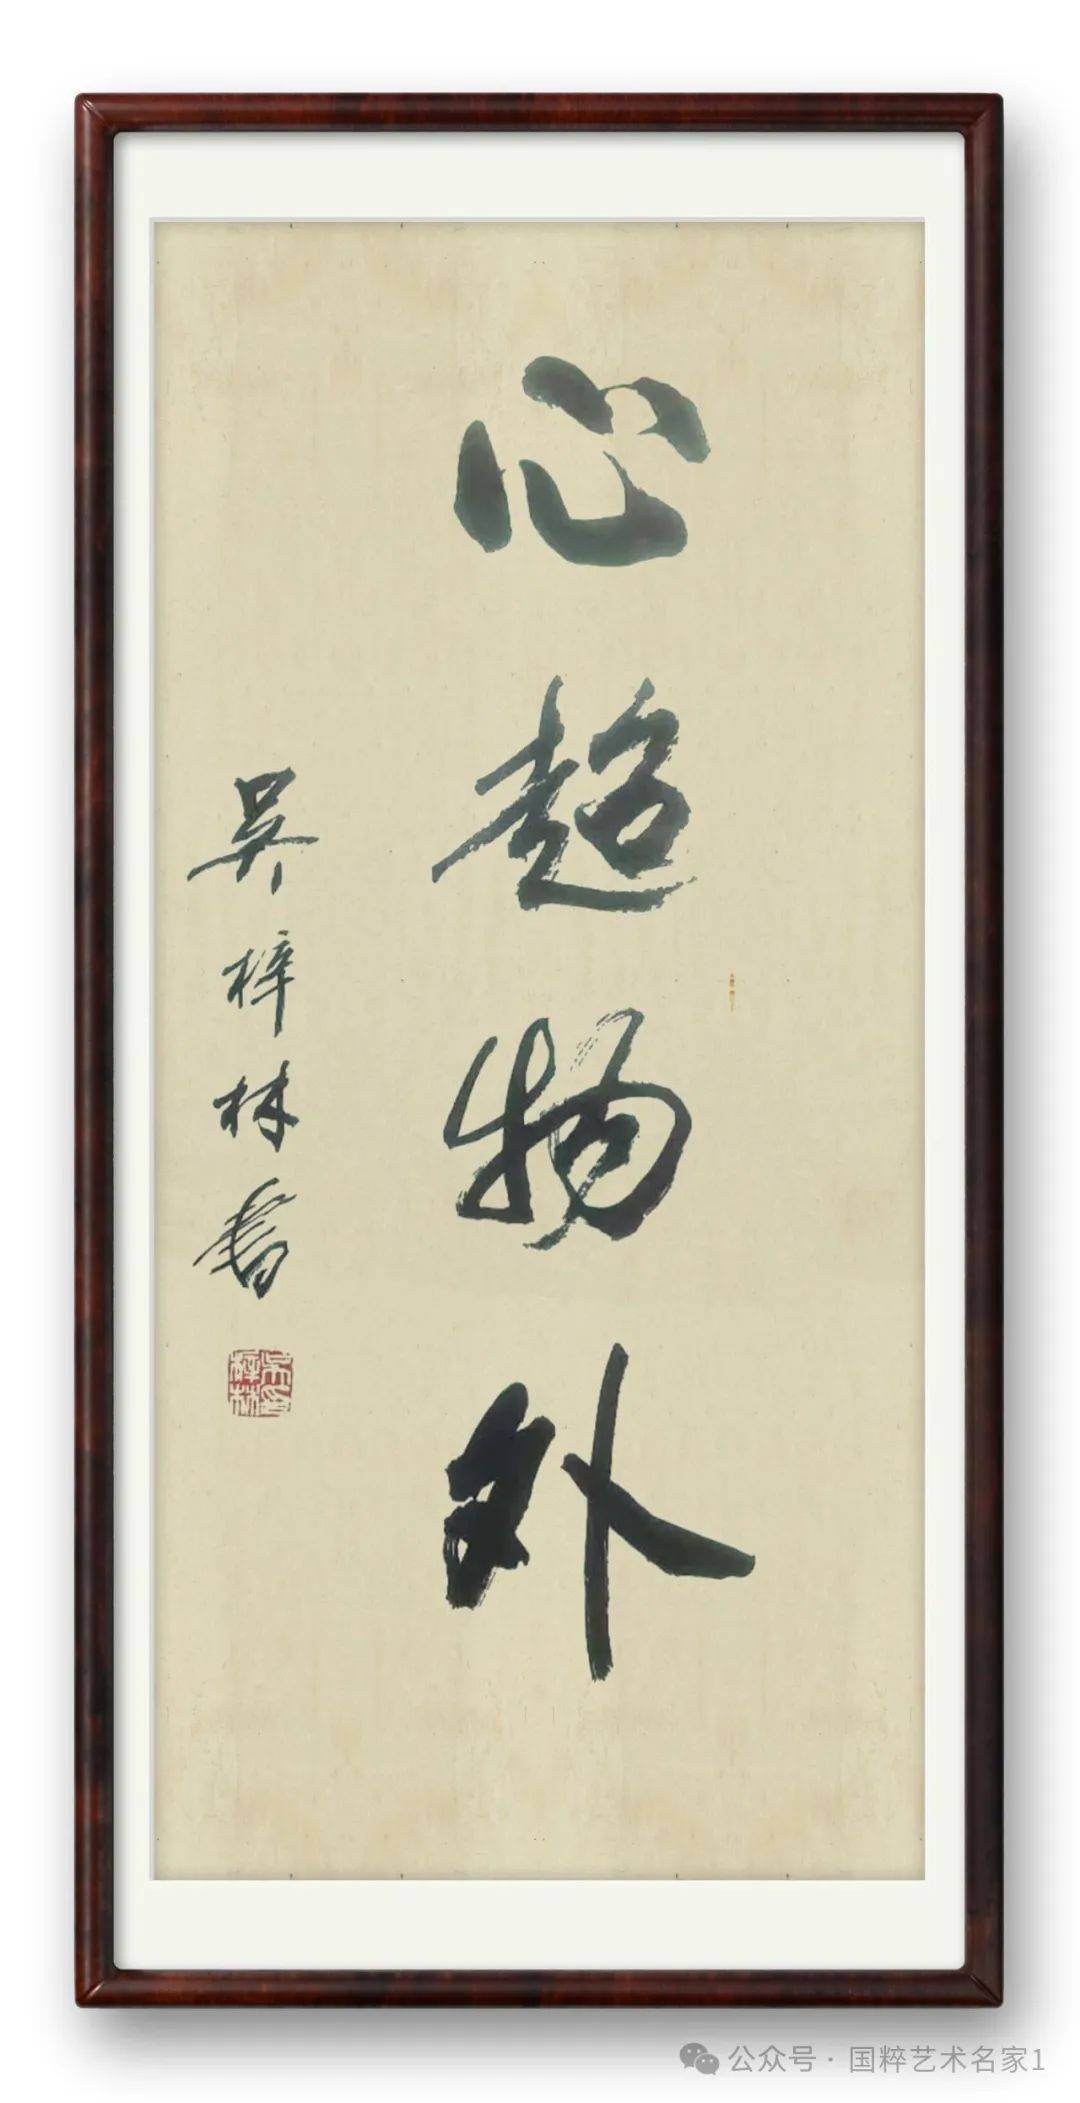 心超物外
吴梓林书
吴梓林印
公众号 · 国粹艺术名家1